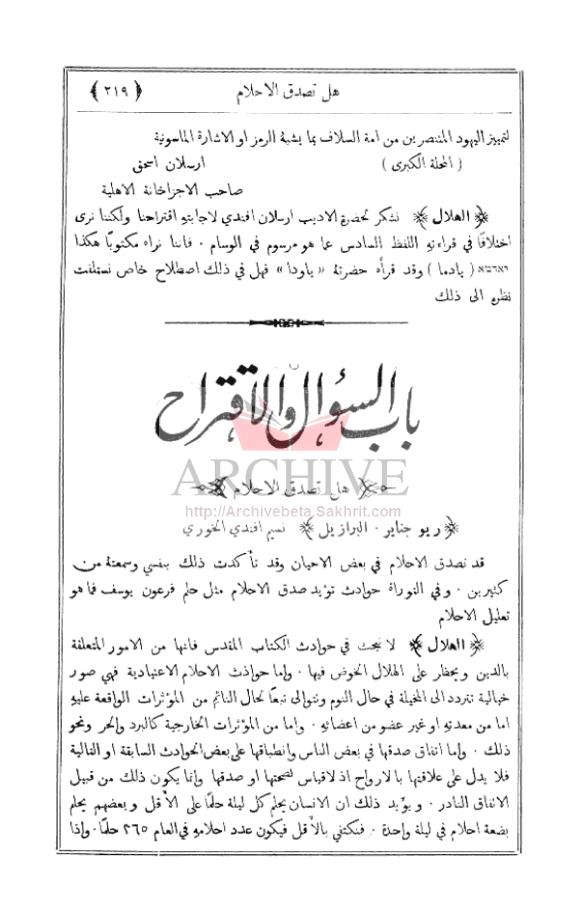 هل تصدق الاحلام ﴿٢١٩﴾
لتمييز اليهود المتنصرين من امة السلاف بما يشبه الرمز او الاشارة الماسونية
( المحلة الكبرى ) ارسلان اسحق
صاحب الاجزاخانة الاهلية
﴿ الهلال ﴾ نشكر لحضرة الاديب ارسلان افندي لاجابته اقتراحنا ولكننا نرى
اختلافًا في قراءته اللفظ السادس عما هو مرسوم في الوسام . فاننا نراه مكتوبًا هكذا
( يادما ) وقد قرأه حضرته « ياودا » فهل في ذلك اصطلاح خاص نستلفت
نظره الى ذلك
باب السؤال والاقتراح
ARCHIVE
﴿ هل تصدق الاحلام ﴾
http://Archivebeta.Sakhrit.com
﴿ ريو جنايرو . البرازيل ﴾ نسيم افندي الخوري
قد تصدق الاحلام في بعض الاحيان وقد تأكدت ذلك بنفسي وسمعته من
كثيرين . وفي التوراة حوادث تؤيد صدق الاحلام مثل حلم فرعون يوسف فما هو
تعليل الاحلام
﴿ الهلال ﴾ لا نبحث في حوادث الكتاب المقدس فانها من الامور المتعلقة
بالدين ويحظر على الهلال الخوض فيها . واما حوادث الاحلام الاعتيادية فهي صور
خيالية تتردد الى المخيلة في حال النوم وتتوالى تبعًا لحال النائم من المؤثرات الواقعة عليه
اما من معدته او غير عضو من اعضائه . واما من المؤثرات الخارجية كالبرد والحر ونحو
ذلك . واما اتفاق صدقها في بعض الناس وانطباقها على بعض الحوادث السابقة او التالية
فلا يدل على علاقتها بالارواح اذ لا قياس لصحتها او صدقها وانما يكون ذلك من قبيل
الاتفاق النادر . ويؤيد ذلك ان الانسان يحلم كل ليلة حلمًا على الاقل وبعضهم يحلم
بضعة احلام في ليلة واحدة . فنكتفي بالاقل فيكون عدد احلامه في العام ٣٦٥ حلمًا . واذا